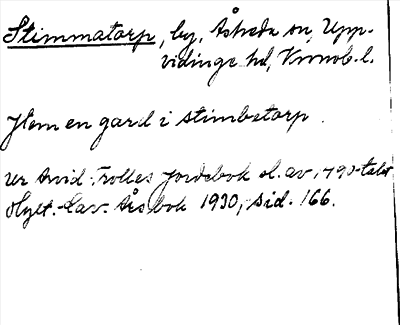 Stimmatorp, by, Åsheda sn, Upp-
vidinge hd, Kronob. l.
Hem en gard i stimbetorp.
Ur Arvid Trolles Jordebok sl. av 1490-talet
Hylt.-Cav. Årsbok 1930, sid. 166.